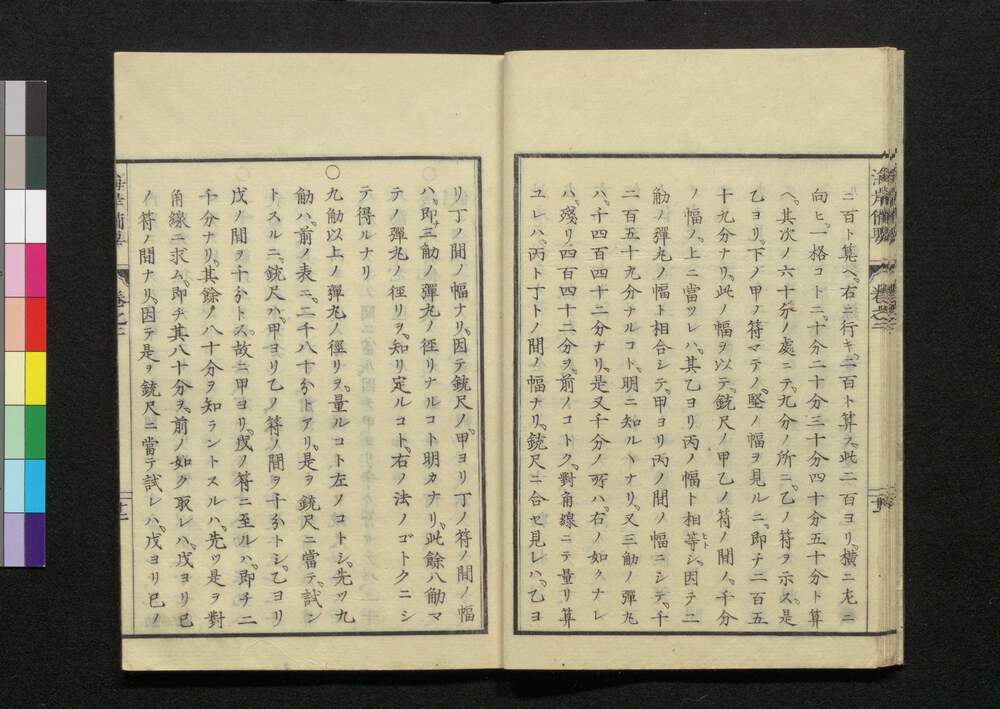 ニ百ト算ヘ。右ニ行キ。二百ト算ス。此二百ヨリ。横ニ左ニ
向ヒ。一格コトニ。十分二十分三十分四十分五十分ト算
ヘ。其次ノ六十分ノ處ニテ。九分ノ所ニ。乙ノ符ヲ示ス。是
乙ヨリ。下ノ甲ノ符マテノ。堅ノ幅ヲ見ルニ。即チ二百五
十九分ナリ。此ノ幅ヲ以テ。銃尺ノ甲乙ノ符ノ間ノ。千分
ノ幅ノ。上ニ當ツレハ。其乙ヨリ丙ノ幅ト相等シ。因テ二
觔ノ彈丸ノ幅ト相合シテ。甲ヨリ丙ノ間ノ幅ニシテ。千
二百五十九分ナルコト。明ニ知ルヽナリ。又三觔ノ彈丸
ハ。千四百四十二分ナリ。是又千分ノ所ハ。右ノ如クナレ
ハ。殘リ四百四十二分ヲ。前ノコトク。對角線ニテ量リ算
ユレハ。丙ト丁トノ間ノ幅ナリ。銃尺ニ合セ見レハ。乙ヨ
リ丁ノ間ノ幅ナリ。因テ銃尺ノ甲ヨリ丁ノ符ノ間ノ幅
ハ。即チ三觔ノ彈丸ノ徑リナルコト明カナリ。此餘八觔マ
テノ彈丸ノ徑リヲ。知リ定ルコト。右ノ法ノゴトクニシ
テ得ルナリ
○九觔以上ノ彈丸ノ徑リヲ。量ルコト左ノコトシ。先ツ九
觔ハ。前ノ表ニ。二千八十分トアリ。是ヲ銃尺ニ當テ。試ン
トスルニ。銃尺ハ。甲ヨリ乙ノ符ノ間ヲ千分トシ。乙ヨリ
戊ノ間ヲ十分トス。故ニ甲ヨリ。戊ノ符ニ至ルハ。即チ二
千分ナリ。其餘ノ八十分ヲ知ラントスルハ。先ツ是ヲ對
角線ニ求ム。即チ其八十分ヲ。前ノ如ク取レハ。戊ヨリ己
ノ符ノ間ナリ。因テ是ヲ銃尺ニ當テ試レハ。戊ヨリ己ノ